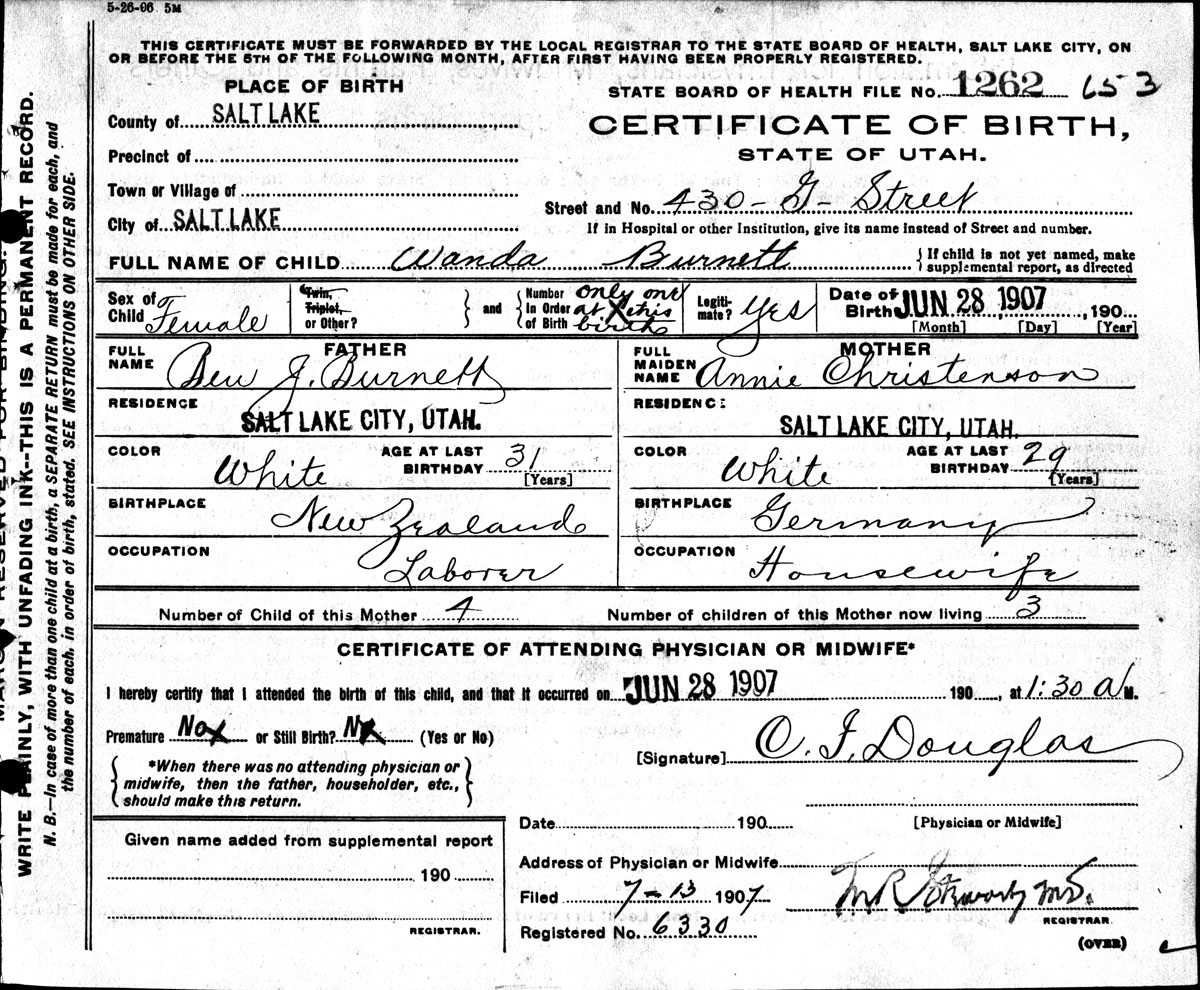 5-26-06 5M
THIS CERTIFICATE MUST BE FORWARDED BY THE LOCAL REGISTRAR TO THE STATE BOARD OF HEALTH, SALT LAKE CITY, ON
OR BEFORE THE 5TH OF THE FOLLOWING MONTH, AFTER FIRST HAVING BEEN PROPERLY REGISTERED.
PLACE OF BIRTH
STATE BOARD OF HEALTH FILE NO. 1262 653
County of SALT LAKE
CERTIFICATE OF BIRTH,
Precinct of
STATE OF UTAH.
Town or Village of
Street and No. 430 - G - Street
City of SALT LAKE
If in Hospital or other Institution, give its name instead of Street and number.
FULL NAME OF CHILD Wanda Burnett
If child is not yet named, make
supplemental report, as directed
Sex of
Child Female
Twin,
Triplet,
or Other?
and
Number
In Order
of Birth
only one
at this
birth
Legiti-
mate? Yes
Date of
Birth JUN 28 1907, 190
[Month] [Day] [Year]
FATHER
FULL
NAME Ben J. Burnett
MOTHER
FULL
MAIDEN
NAME Annie Christenson
RESIDENCE
SALT LAKE CITY, UTAH.
RESIDENCE
SALT LAKE CITY, UTAH.
COLOR White
AGE AT LAST
BIRTHDAY 31
[Years]
COLOR White
AGE AT LAST
BIRTHDAY 29
[Years]
BIRTHPLACE New Zealand
BIRTHPLACE Germany
OCCUPATION Laborer
OCCUPATION Housewife
Number of Child of this Mother 4
Number of children of this Mother now living 3
CERTIFICATE OF ATTENDING PHYSICIAN OR MIDWIFE*
I hereby certify that I attended the birth of this child, and that it occurred on JUN 28 1907 190, at 1:30 A M.
Premature No or Still Birth? No (Yes or No)
[Signature] O. F. Douglas
*When there was no attending physician or
midwife, then the father, householder, etc.,
should make this return.
Date 190
[Physician or Midwife]
Given name added from supplemental report
190
REGISTRAR.
Address of Physician or Midwife
Filed 7-13 1907
M.D.
REGISTRAR.
Registered No. 6330
(OVER)
WRITE PLAINLY, WITH UNFADING INK--THIS IS A PERMANENT RECORD.
N. B.—In case of more than one child at a birth, a SEPARATE RETURN must be made for each, and
the number of each, in order of birth, stated. SEE INSTRUCTIONS ON OTHER SIDE.